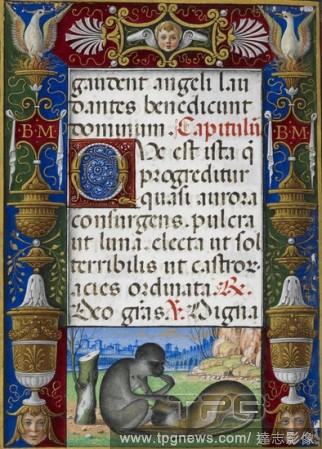 B·M
B·M
gaudent angeli lau
dantes benedicunt
dominum. Capitulũ
Ve est ista q̃
progreditur
quasi aurora
consurgens, pulcra
ut luna. electa ut sol
terribilis ut castror̃
acies ordinata. R.
Deo grãs. V. Digna
TPG
www.tpgnews.com/ 達志影像